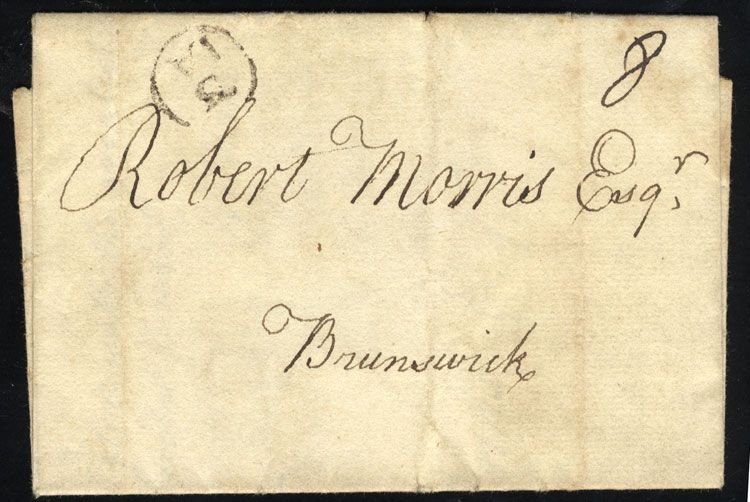 8
Robert Morris Esqr.
Brunswick